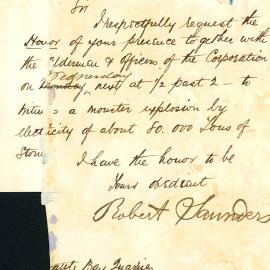 Sir
I respectfully request the
Honor of your presence together with
the Alderman & officers of the Corporation
Wednesday
on Monday next at ½ past 2 to
witness a monster explosion by
electricity of about 80.000 Tons of
Stone
I have the honor to be
Yours obedient
Robert Saunders
Bay Quarries